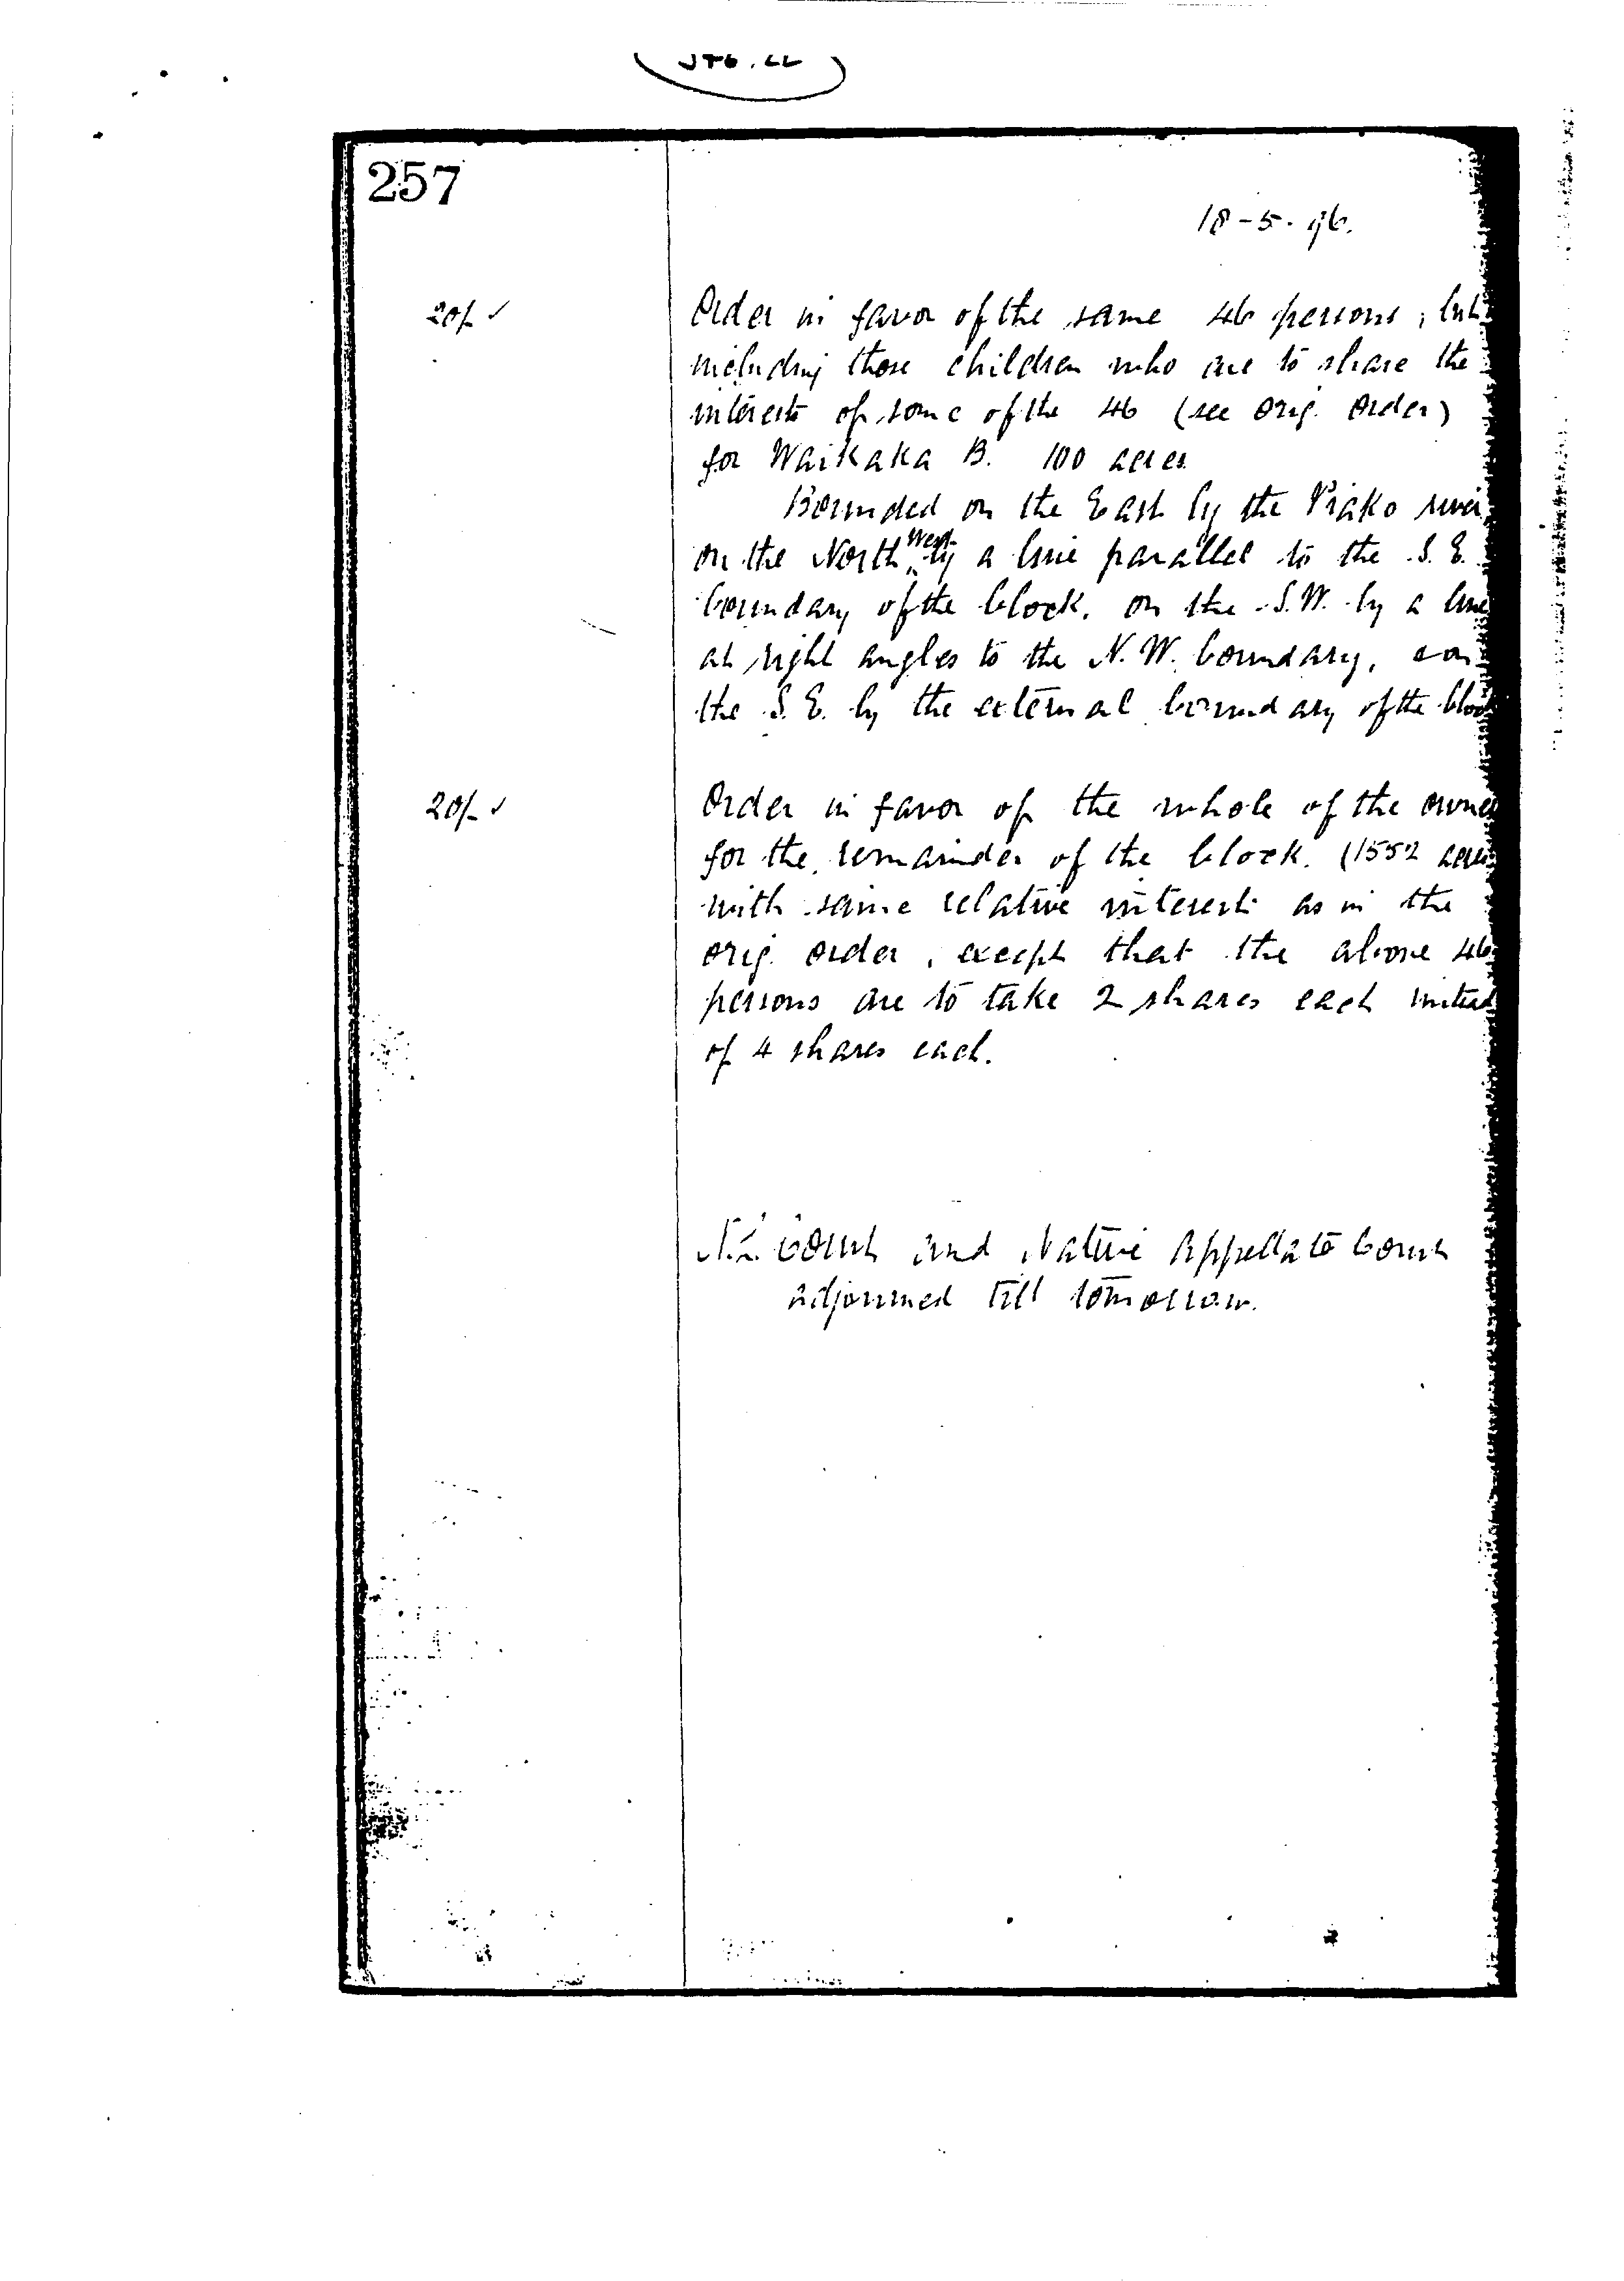 JTG. LL
257
18-5-96.
20/- ✓
Order in favor of the same 46 persons, but
including those children who are to share the
interests of some of the 46 (see orig. order)
for Waikaka B. 100 acres
Bounded on the East by the Piako river
on the North West by a line parallel to the S. E.
boundary of the block, on the S.W. by a line
at right angles to the N. W. boundary,
the S. E. by the external boundary of the block
20/- ✓
Order in favor of the whole of the owne
for the remainder of the block. (1552 acres
with same relative interests as in the
orig. order, except that the above 46
persons are to take 2 shares each instead
of 4 shares each.
N.L. Court and Native Appellate Court
adjourned till tomorrow.